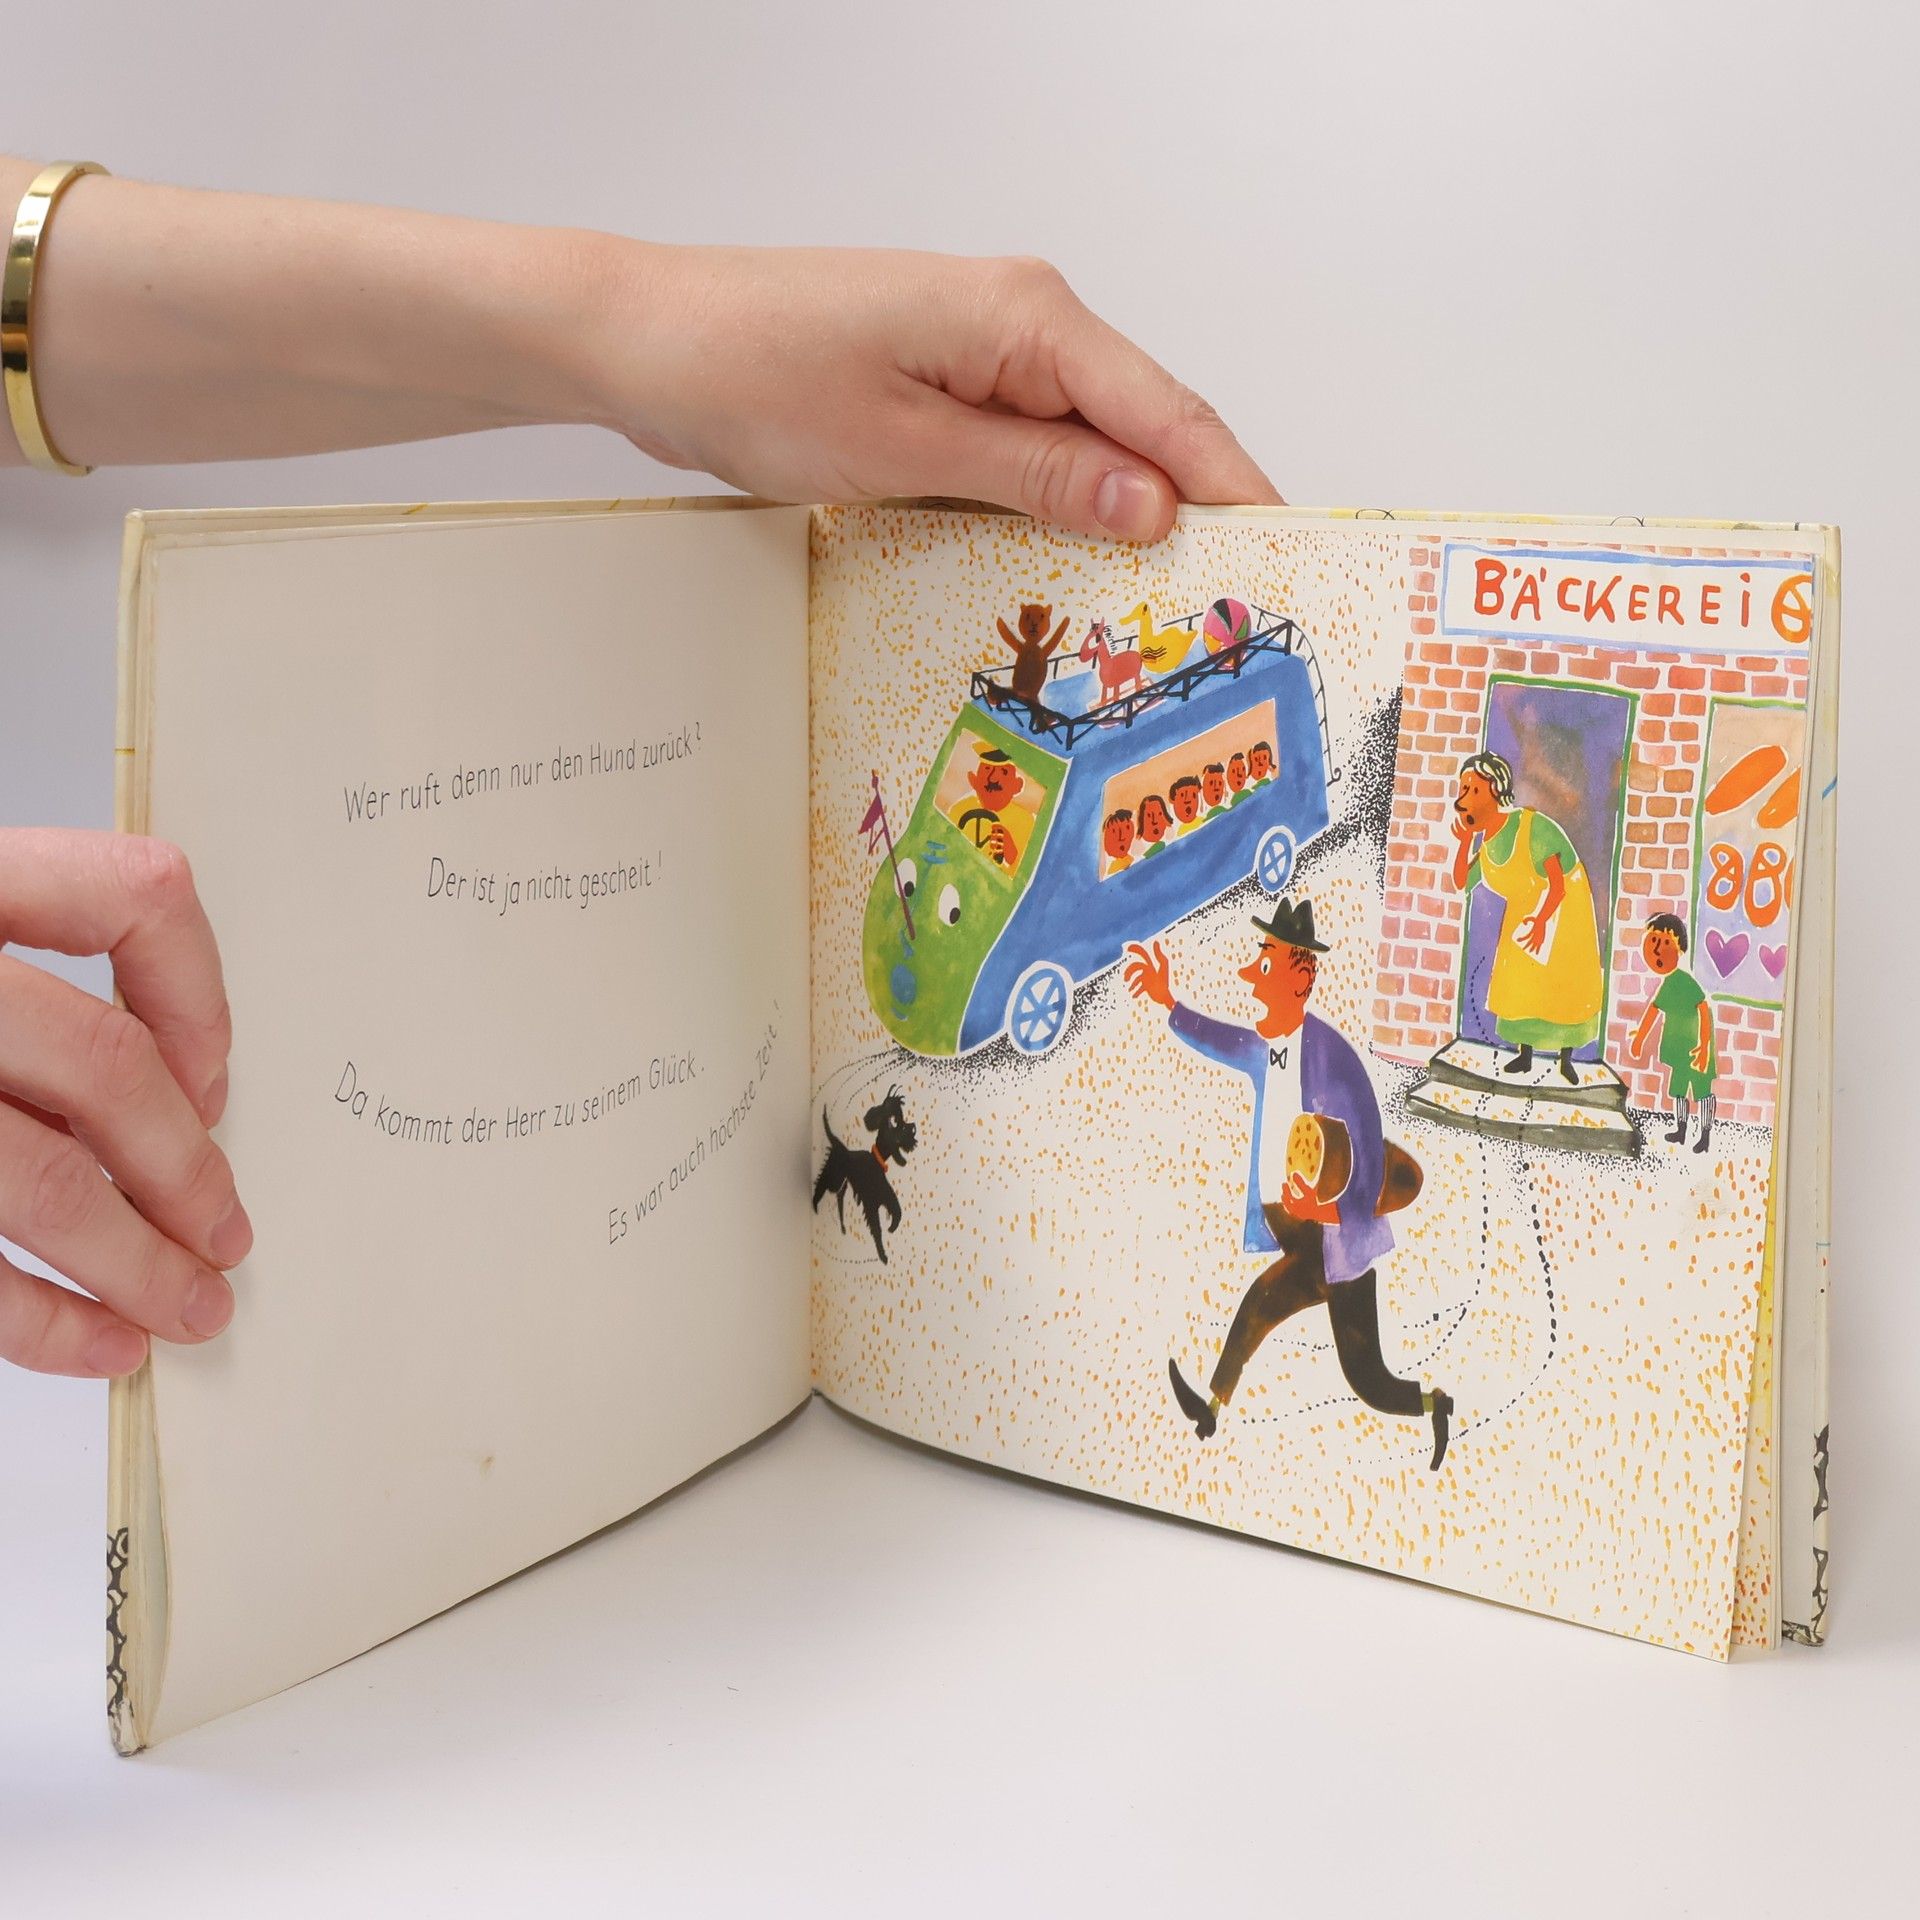 Wer ruft denn nur den Hund zurück?
Der ist ja nicht gescheit!
Da kommt der Herr zu seinem Glück.
Es war auch höchste Zeit!
BÄCKEREI